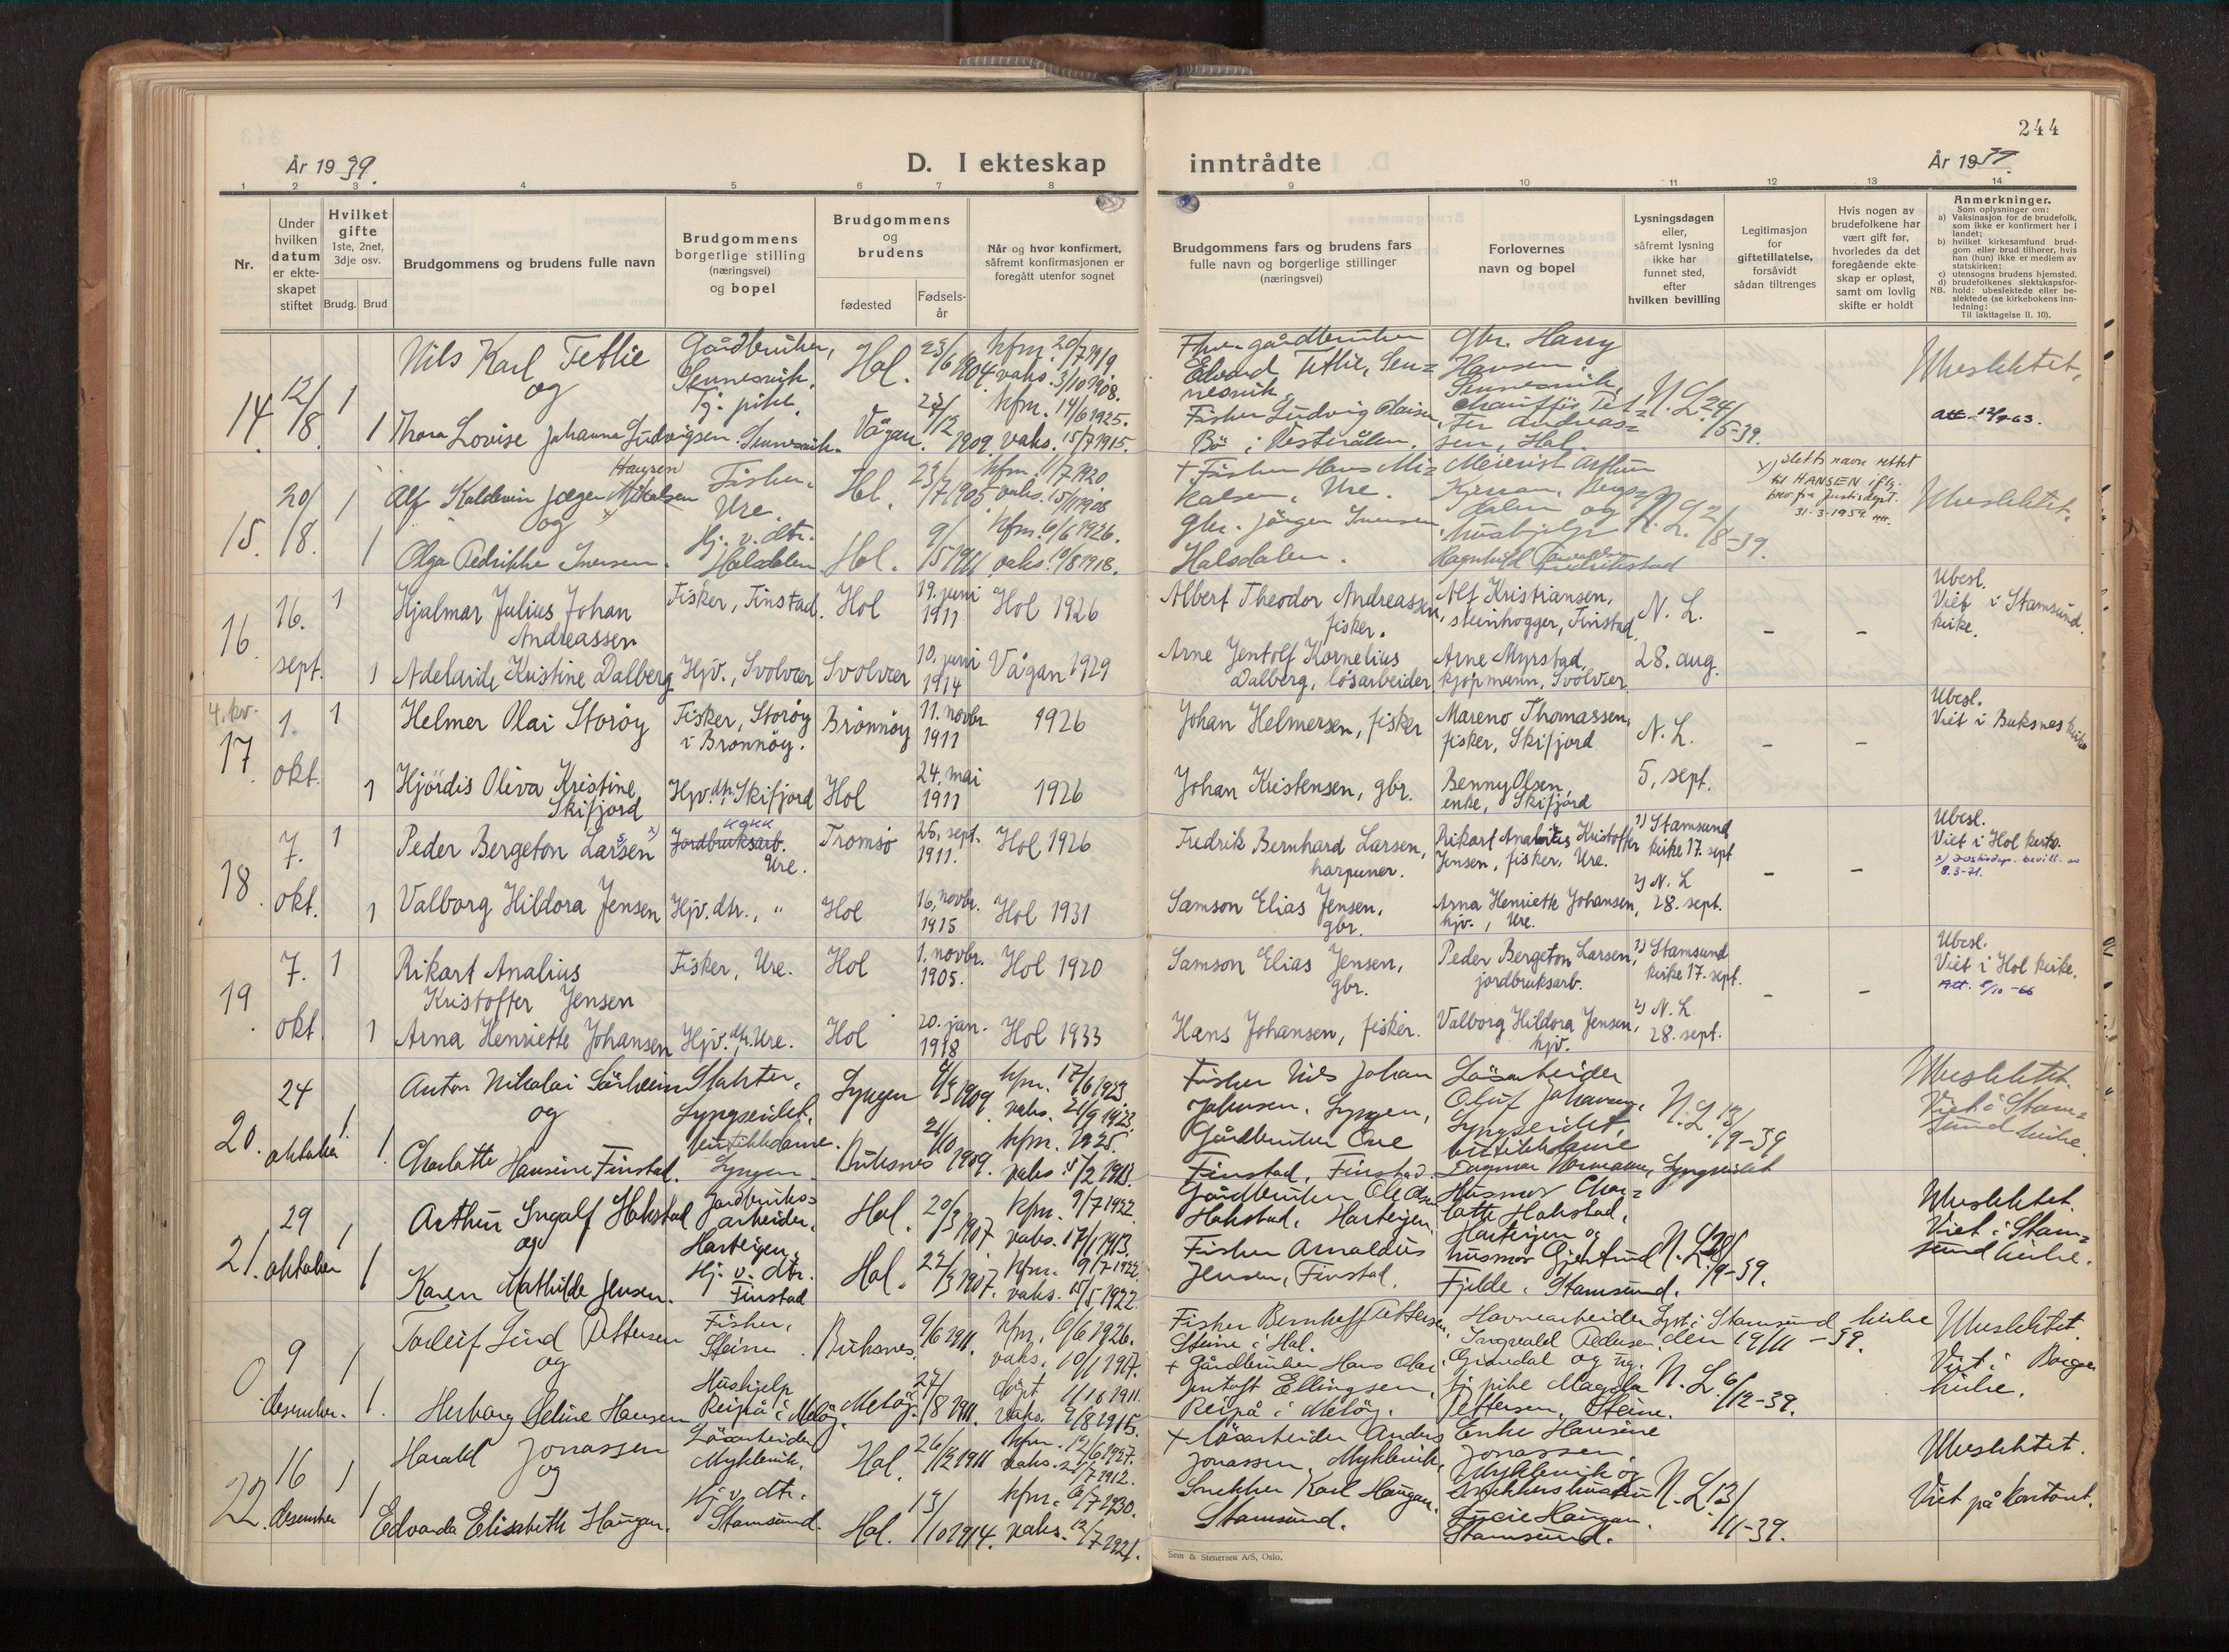 244
År 1939.
D. I ekteskap
inntrådte
År 1939.
1 2 3 4 5 6 7 8 9 10 11 12 13 14
Nr.
Under hvilken datum er ekteskapet stiftet
Hvilket gifte
1ste, 2net, 3dje osv.
Brudg. Brud
Brudgommens og brudens fulle navn
Brudgommens borgerlige stilling (næringsvei) og bopel
Brudgommens og brudens
fødested
Fødsels-år
Når og hvor konfirmert, såfremt konfirmasjonen er foregått utenfor sognet
Brudgommens fars og brudens fars fulle navn og borgerlige stillinger (næringsvei)
Forlovernes navn og bopel
Lysningsdagen eller, såfremt lysning ikke har funnet sted, efter hvilken bevilling
Legitimasjon for giftetillatelse, forsåvidt sådan tiltrenges
Hvis nogen av brudefolkene har vært gift før, hvorledes da det foregående ekteskap er opløst, samt om lovlig skifte er holdt
Anmerkninger.
Som oplysninger om:
a) Vaksinasjon for de brudefolk, som ikke er konfirmert her i landet;
b) hvilket kirkesamfund brudgom eller brud tilhører, hvis han (hun) ikke er medlem av statskirken;
c) utensogns brudens hjemsted.
d) brudefolkenes slektskapsforhold: ubeslektede eller beslektede (se kirkebokens innledning:
NB.
Til iakttagelse II. 10).
14. 12/8 1
Nils Karl Tetlie
og
Gårdbruker, Sennesvik.
Hol. 23/6 1904.
kfm. 20/7 1919
vaks. 3/10 1908.
gårdbruker Edvard Tetlie, Sennesvik.
Gbr. Harry Hansen, Sennesvik,
Ubeslektet,
1 Thora Lovise Johanna Ludvigsen.
Tj. pike. Sennesvik.
Vågan. 1909.
kfm. 14/6 1925.
vaks. 15/7 1915.
Fisker Ludvig
Bø i Vesterålen.
Hol.
N. L. 24/5-39.
15. 20/8. 1
Alf Koldevin Jæger Mikalsen x
Hansen
og
Fisker. Ure.
Hol. 23/7 1905
kfm. 11/7 1920.
vaks. 15/11 1908
+ Fisker Hans Mikalsen, Ure.
Meierist Arthur
x) Slektsnavn rettet til HANSEN iflg. brev fra Justisdept. 31-3-1959
Ubeslektet.
1 Olga Pedrikke Iversen.
Hj. v. dtr. Holsdalen
Hol. 9/5 1911
kfm. 6/6 1926.
vaks. 10/8 1918.
Gbr. Jörgen Iversen, Holsdalen.
Ragnhild
N. L. 2/8-39.
16. 16. sept. 1
Hjalmar Julius Johan Andreassen
Fisker, Finstad.
Hol
19. juni 1911
Hol 1926
Albert Theodor Andreassen, fisker.
Alf Kristiansen, steinhogger, Finstad.
N. L. 28. aug.
Ubesl. Viet i Stamsund kirke.
1 Adelaide Kristine Dalberg
Hjv., Svolvær
Svolvær
10. juni 1914
Vågan 1929
Arne Jentolf Kornelius Dalberg, løsarbeider
Arne Myrstad, kjøpmann, Svolvær.
4. kv.
17. 1. okt. 1
Helmer Olai Storøy
Fisker, Storøy i Brønnøy.
Brønnøy
11. novbr. 1911
1926
Johan Helmersen, fisker
Mareno Thomassen, fisker, Skifjord
N. L. 5. sept.
Ubesl. Viet i Buksnes kirke
1 Hjördis Oliva Kristine Skifjord
Hjv. dtr. Skifjord
Hol
24. mai 1911
1926
Johan Kristensen, gbr.
Benny Olsen, enke, Skifjord
18. 7. okt. 1
Peder Bergeton Larsen x)
Jordbruksarb. Ure.
KOKK
Tromsø
25. sept. 1911.
Hol 1926
Fredrik Bernhard Larsen, harpuner.
Rikart Analius Kristoffer Jensen, fisker, Ure.
1) Stamsund kirke 17. sept
2) N. L 28. sept.
Ubesl. Viet i Hol kirke.
x) Justisdep. bevill. av 8.3-21.
1 Valborg Hildora Jensen
Hjv. dtr., "
Hol
16. novbr. 1915
Hol 1931
Samson Elias Jensen, gbr.
Arna Henriette Johansen, hjv., Ure.
19. 7. okt. 1
Rikart Analius Kristoffer Jensen
Fisker, Ure.
Hol
1. novbr. 1905.
Hol 1920
Samson Elias Jensen, gbr.
Peder Bergeton Larsen, jordbruksarb.
1) Stamsund kirke 17. sept.
2) N. L 28. sept.
Ubesl. Viet i Hol kirke.
Att. 5/10-66
1 Arna Henriette Johansen
Hjv. dtr. Ure.
Hol
20. jan. 1918
Hol 1933
Hans Johansen, fisker.
Valborg Hildora Jensen, hjv.
20. 24 oktober 1
Anton Nikolai Sörheim
og
Slakter, Lyngseidet.
Lyngen
1909
kfm. 17/6 1923
Fisker Nils Johan Johnsen, Lyngen,
Lösarbeider Oluf Johansen, Lyngseidet,
N. L. 13/9-39
Ubeslektet. Viet i Stamsund kirke.
1. Charlotte Hansine Finstad.
Butikkdame. Lyngen
Buksnes 1909.
kfm. 1925.
Gårdbruker Ove Finstad, Finstad.
butikkdame Dagmar Normann, Lyngseidet
21. 29 oktober 1
Arthur Ingolf Hokstad
og
Jordbruksarbeider, Harteigen.
Hol. 20/3 1907
kfm. 9/7 1922
vaks. 17/1 1913.
Gårdbruker Ole Hokstad, Harteigen.
Husmor Charlotte Hokstad, Harteigen og
N. L. 28/9-39.
Ubeslektet. Viet i Stamsund kirke.
1 Karen Mathilde Jensen.
Hj. v. dtr. Finstad
Hol. 22/3 1907.
kfm. 9/7 1922
vaks. 15/5 1922.
Fisker Arnaldus Jensen, Finstad.
husmor Gjertrud Fjelde, Stamsund.
0 9 desember. 1
Torleif Lind Pettersen
og
Fisker, Steine.
Buksnes. 9/6 1911.
kfm. 6/6 1926.
vaks. 10/1 1917.
Fisker Bernhoff Pettersen, Steine i Hol.
Havnearbeider Ingvald Pedersen,
Lyst i Stamsund kirke den 19/11-39.
Ubeslektet. Viet i kirke.
1. Herborg Seline Hansen
Hushjelp Reipå i Meløy.
Meløy. 27/8 1911.
döpt 1/10 1911.
+ Gårdbruker Hans Olai Jentoft Ellingsen, Reipå i Meløy.
tj. pike Magda Pettersen, Steine.
N. L. 6/12-39.
22. 16 desember 1
Harald Jonassen
og
Lösarbeider Myklevik.
Hol. 26/12 1911
kfm. 12/6 1927.
+ lösarbeider Anders Jonassen, Myklevik.
Enke Hansine Jonassen, Myklevik og
N. L. 13/11-39.
Ubeslektet. Viet på kontoret.
1 Edvarda Elisabeth Haugan.
Hj. v. dtr. Stamsund.
Hol. 13/10 1914.
kfm. 6/7 1930.
vaks. 12/7 1921.
Snekker Karl Haugan. Stamsund.
Lucie Haugan. Stamsund.
Sem & Stenersen A/S, Oslo.